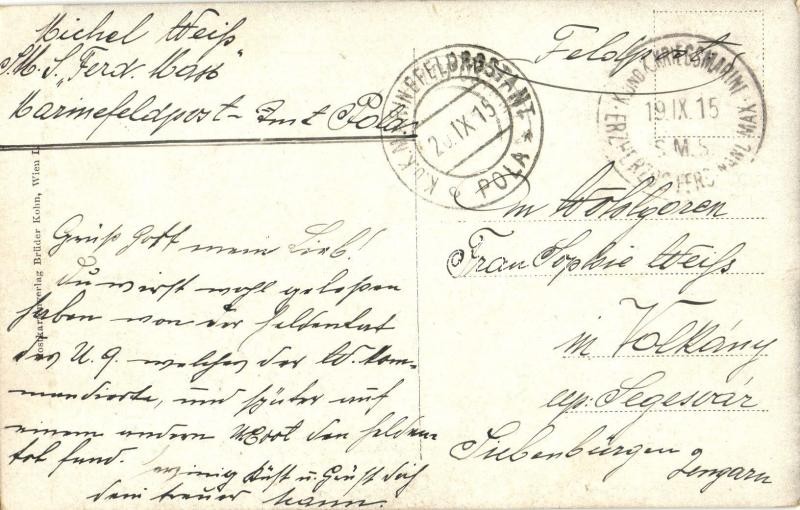 Michel Weiß
S.M.S. „Ferd. Max"
Marinefeldpost-Amt Pola
Feldpost
K.U.K. MARINEFELDPOSTAMT
IX 15
POLA
K. UND K. KRIEGSMARINE
19.IX.15
S.M.S.
ERZHERZOG FERDINAND MAX
Postkartenverlag Brüder Kohn, Wien I.
Grüß Gott mein Lieb!
Du wirst wohl gelesen
haben von der Heldentat
des U. 9 welches der W. kom-
mandierte, und später auf
einem andern U.Boot den Helden-
tot fand.
innig Küßt u. Grüßt dich
dein treuer Mann.
An Wohlgoren
Frau Sophie Weiß
in Volkány
up: Segesvár
Siebenbürgen
Ungarn